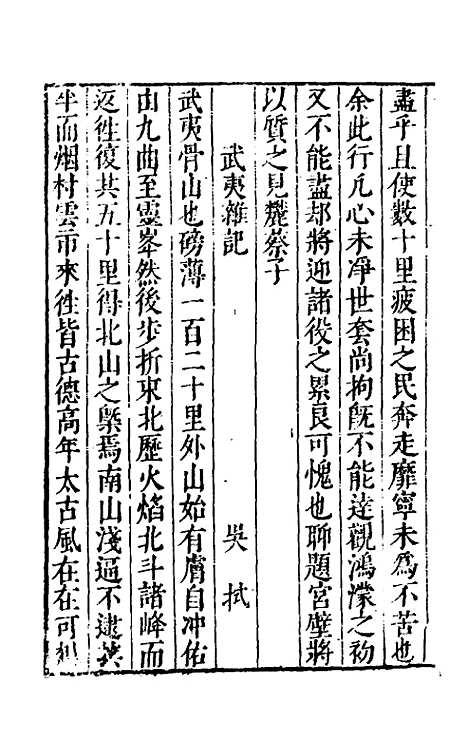 盡乎且使數十里疲困之民奔走靡寧未爲不苦也
余此行凡心未凈世套尚拘旣不能達觀鴻濛之初
又不能盡却將迎諸役之累良可愧也聊題宮壁將
以質之見麓蔡子
武夷雜記 吳拭
武夷骨山也磅薄一百二十里外山始有膚自冲佑
由九曲至靈峯然後步折東北歷火焰北斗諸峰而
返徃復共五十里得北山之槩焉南山淺逼不逮其
半而烟村雲市來徃皆古德高年太古風在在可